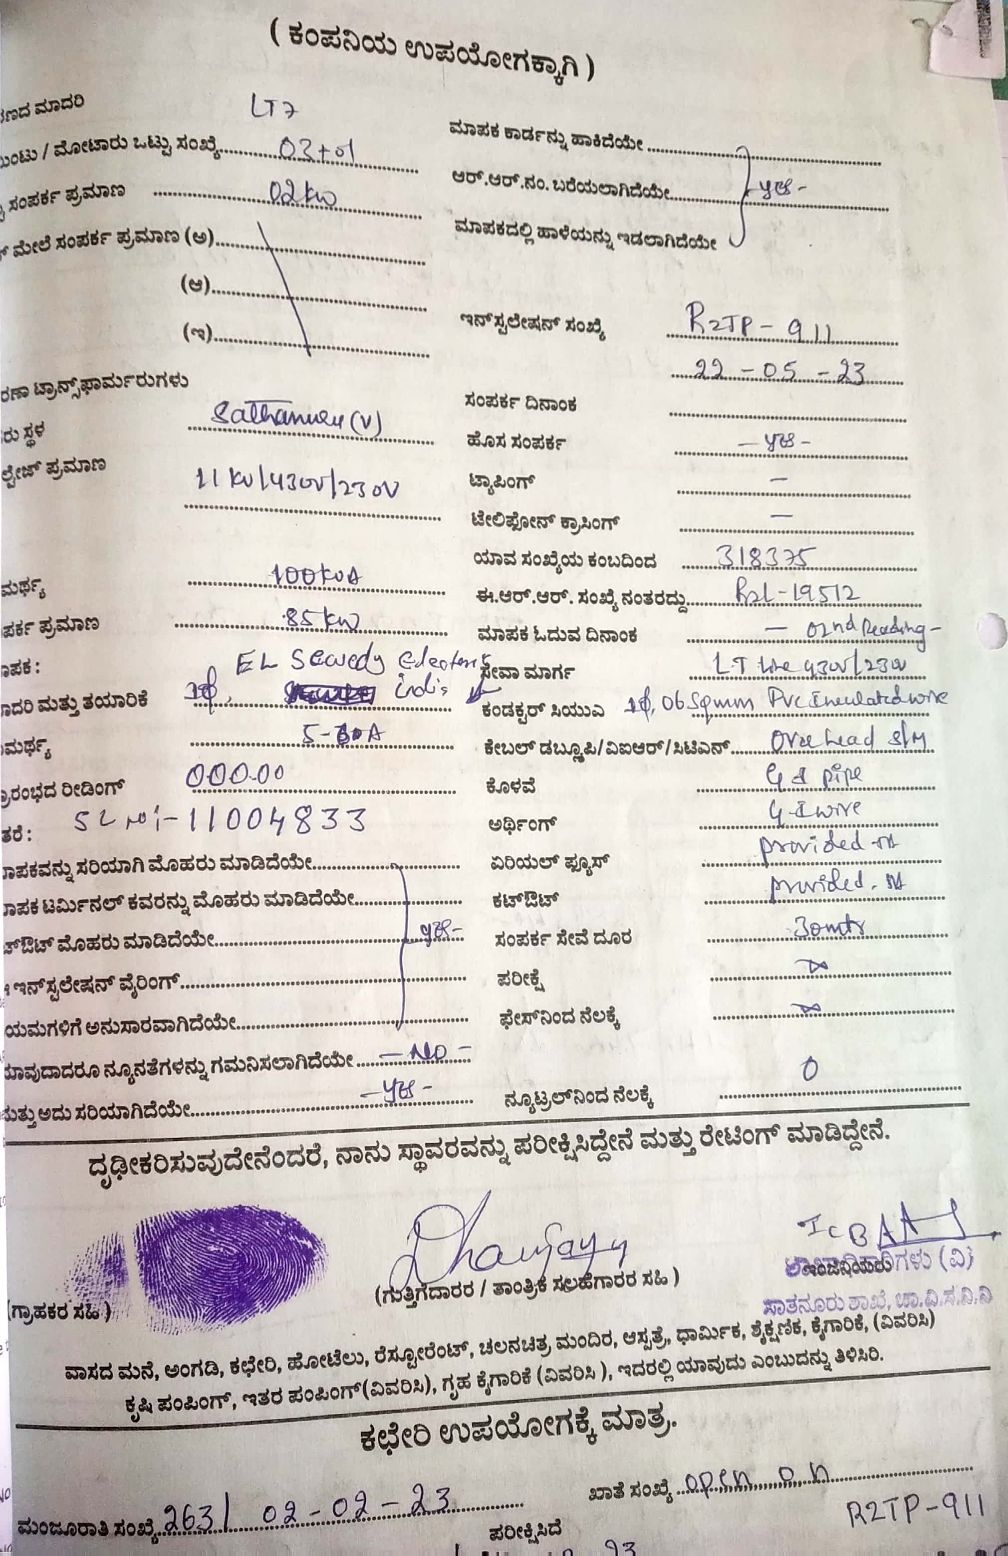 ( ಕಂಪನಿಯ ಉಪಯೋಗಕ್ಕಾಗಿ )
ಮಾದರಿ LT7
ಮೋಟಾರು ಒಟ್ಟು ಸಂಖ್ಯೆ 03+01
ಮಾಪಕ ಕಾರ್ಡನ್ನು ಹಾಕಿದೆಯೇ
ಸಂಪರ್ಕ ಪ್ರಮಾಣ 02kw
ಆರ್.ಆರ್.ನಂ. ಬರೆಯಲಾಗಿದೆಯೇ yes-
ಮೇಲೆ ಸಂಪರ್ಕ ಪ್ರಮಾಣ (ಅ)
ಮಾಪಕದಲ್ಲಿ ಹಾಳೆಯನ್ನು ಇಡಲಾಗಿದೆಯೇ
(ಆ)
(ಇ)
ಇನ್‌ಸ್ಟಲೇಷನ್ ಸಂಖ್ಯೆ R2TP-911
22-05-23
ಟ್ರಾನ್ಸ್‌ಫಾರ್ಮರುಗಳು
ಸಂಪರ್ಕ ದಿನಾಂಕ
ಸ್ಥಳ Sathanur (V)
ಹೊಸ ಸಂಪರ್ಕ -yes-
ಪ್ರಮಾಣ 11KV/430V/230V
ಟ್ಯಾಪಿಂಗ್ -
ಟೇಲಿಫೋನ್ ಕ್ರಾಸಿಂಗ್ -
ಯಾವ ಸಂಖ್ಯೆಯ ಕಂಬದಿಂದ 318375
100kVA
ಈ.ಆರ್.ಆರ್. ಸಂಖ್ಯೆ ನಂತರದ್ದು R2L-19512
ಪ್ರಮಾಣ 85kw
ಮಾಪಕ ಓದುವ ದಿನಾಂಕ - 02nd Reading-
EL Sewedy Electric
ಸೇವಾ ಮಾರ್ಗ LT line 430V/230V
ಮತ್ತು ತಯಾರಿಕೆ 1φ, India
ಕಂಡಕ್ಟರ್ ಸಿಯುಎ 1φ, 06Sqmm PVC Insulated wire
5-30A
ಕೇಬಲ್ ಡಬ್ಲೂಪಿ/ವಿಐಆರ್/ಸಿಟಿಎಸ್ Overhead S/M
ರೀಡಿಂಗ್ 000.00
ಕೊಳವೆ G I pipe
SL No:-11004833
ಅರ್ಥಿಂಗ್ G-I wire
ಸರಿಯಾಗಿ ಮೊಹರು ಮಾಡಿದೆಯೇ
ಏರಿಯಲ್ ಫ್ಯೂಸ್ provided
ಟರ್ಮಿನಲ್ ಕವರನ್ನು ಮೊಹರು ಮಾಡಿದೆಯೇ
ಕಟ್‌ಔಟ್ provided
ಮೊಹರು ಮಾಡಿದೆಯೇ yes-
ಸಂಪರ್ಕ ಸೇವೆ ದೂರ 30mtr
ಇನ್‌ಸ್ಟಲೇಷನ್ ವೈರಿಂಗ್
ಪರೀಕ್ಷೆ
ಅನುಸಾರವಾಗಿದೆಯೇ
ಫೇಸ್‌ನಿಂದ ನೆಲಕ್ಕೆ
ನ್ಯೂನತೆಗಳನ್ನು ಗಮನಿಸಲಾಗಿದೆಯೇ -NO-
ಅದು ಸರಿಯಾಗಿದೆಯೇ -yes-
ನ್ಯೂಟ್ರಲ್‌ನಿಂದ ನೆಲಕ್ಕೆ 0
ದೃಢೀಕರಿಸುವುದೇನೆಂದರೆ, ನಾನು ಸ್ಥಾವರವನ್ನು ಪರೀಕ್ಷಿಸಿದ್ದೇನೆ ಮತ್ತು ರೇಟಿಂಗ್ ಮಾಡಿದ್ದೇನೆ.
Dhananjaya
(ಗ್ರಾಹಕರ ಸಹಿ)
(ಗುತ್ತಿಗೆದಾರರ / ತಾಂತ್ರಿಕ ಸಲಹೆಗಾರರ ಸಹಿ )
ಸಾತನೂರು ಶಾಖೆ, ಚಾ.ವಿ.ಸ.ನಿ.ನಿ
ವಾಸದ ಮನೆ, ಅಂಗಡಿ, ಕಛೇರಿ, ಹೋಟೆಲು, ರೆಸ್ಟೋರೆಂಟ್, ಚಲನಚಿತ್ರ ಮಂದಿರ, ಆಸ್ಪತ್ರೆ, ಧಾರ್ಮಿಕ, ಶೈಕ್ಷಣಿಕ, ಕೈಗಾರಿಕೆ, (ವಿವರಿಸಿ)
ಕೃಷಿ ಪಂಪಿಂಗ್, ಇತರ ಪಂಪಿಂಗ್(ವಿವರಿಸಿ), ಗೃಹ ಕೈಗಾರಿಕೆ (ವಿವರಿಸಿ ), ಇದರಲ್ಲಿ ಯಾವುದು ಎಂಬುದನ್ನು ತಿಳಿಸಿರಿ.
ಕಛೇರಿ ಉಪಯೋಗಕ್ಕೆ ಮಾತ್ರ.
ಮಂಜೂರಾತಿ ಸಂಖ್ಯೆ 263/ 02-02-23
ಖಾತೆ ಸಂಖ್ಯೆ open on
ಪರೀಕ್ಷಿಸಿದೆ
R2TP-911